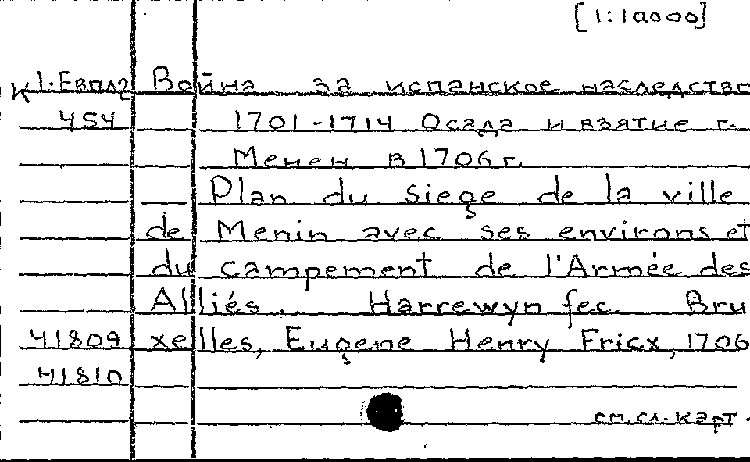 [1:10000]
К 1-Евпл2 Война за испанское наследство
454 1701-1714 Осада и взятие г.
Менен в 1706 г.
Plan du siege de la ville
de Menin avec ses environs et
du campement de l'Armée des
Alliés. Harrewyn fec. Bru
41809 xelles, Eugene Henry Fricx, 1706
41810
см.сл.карт.